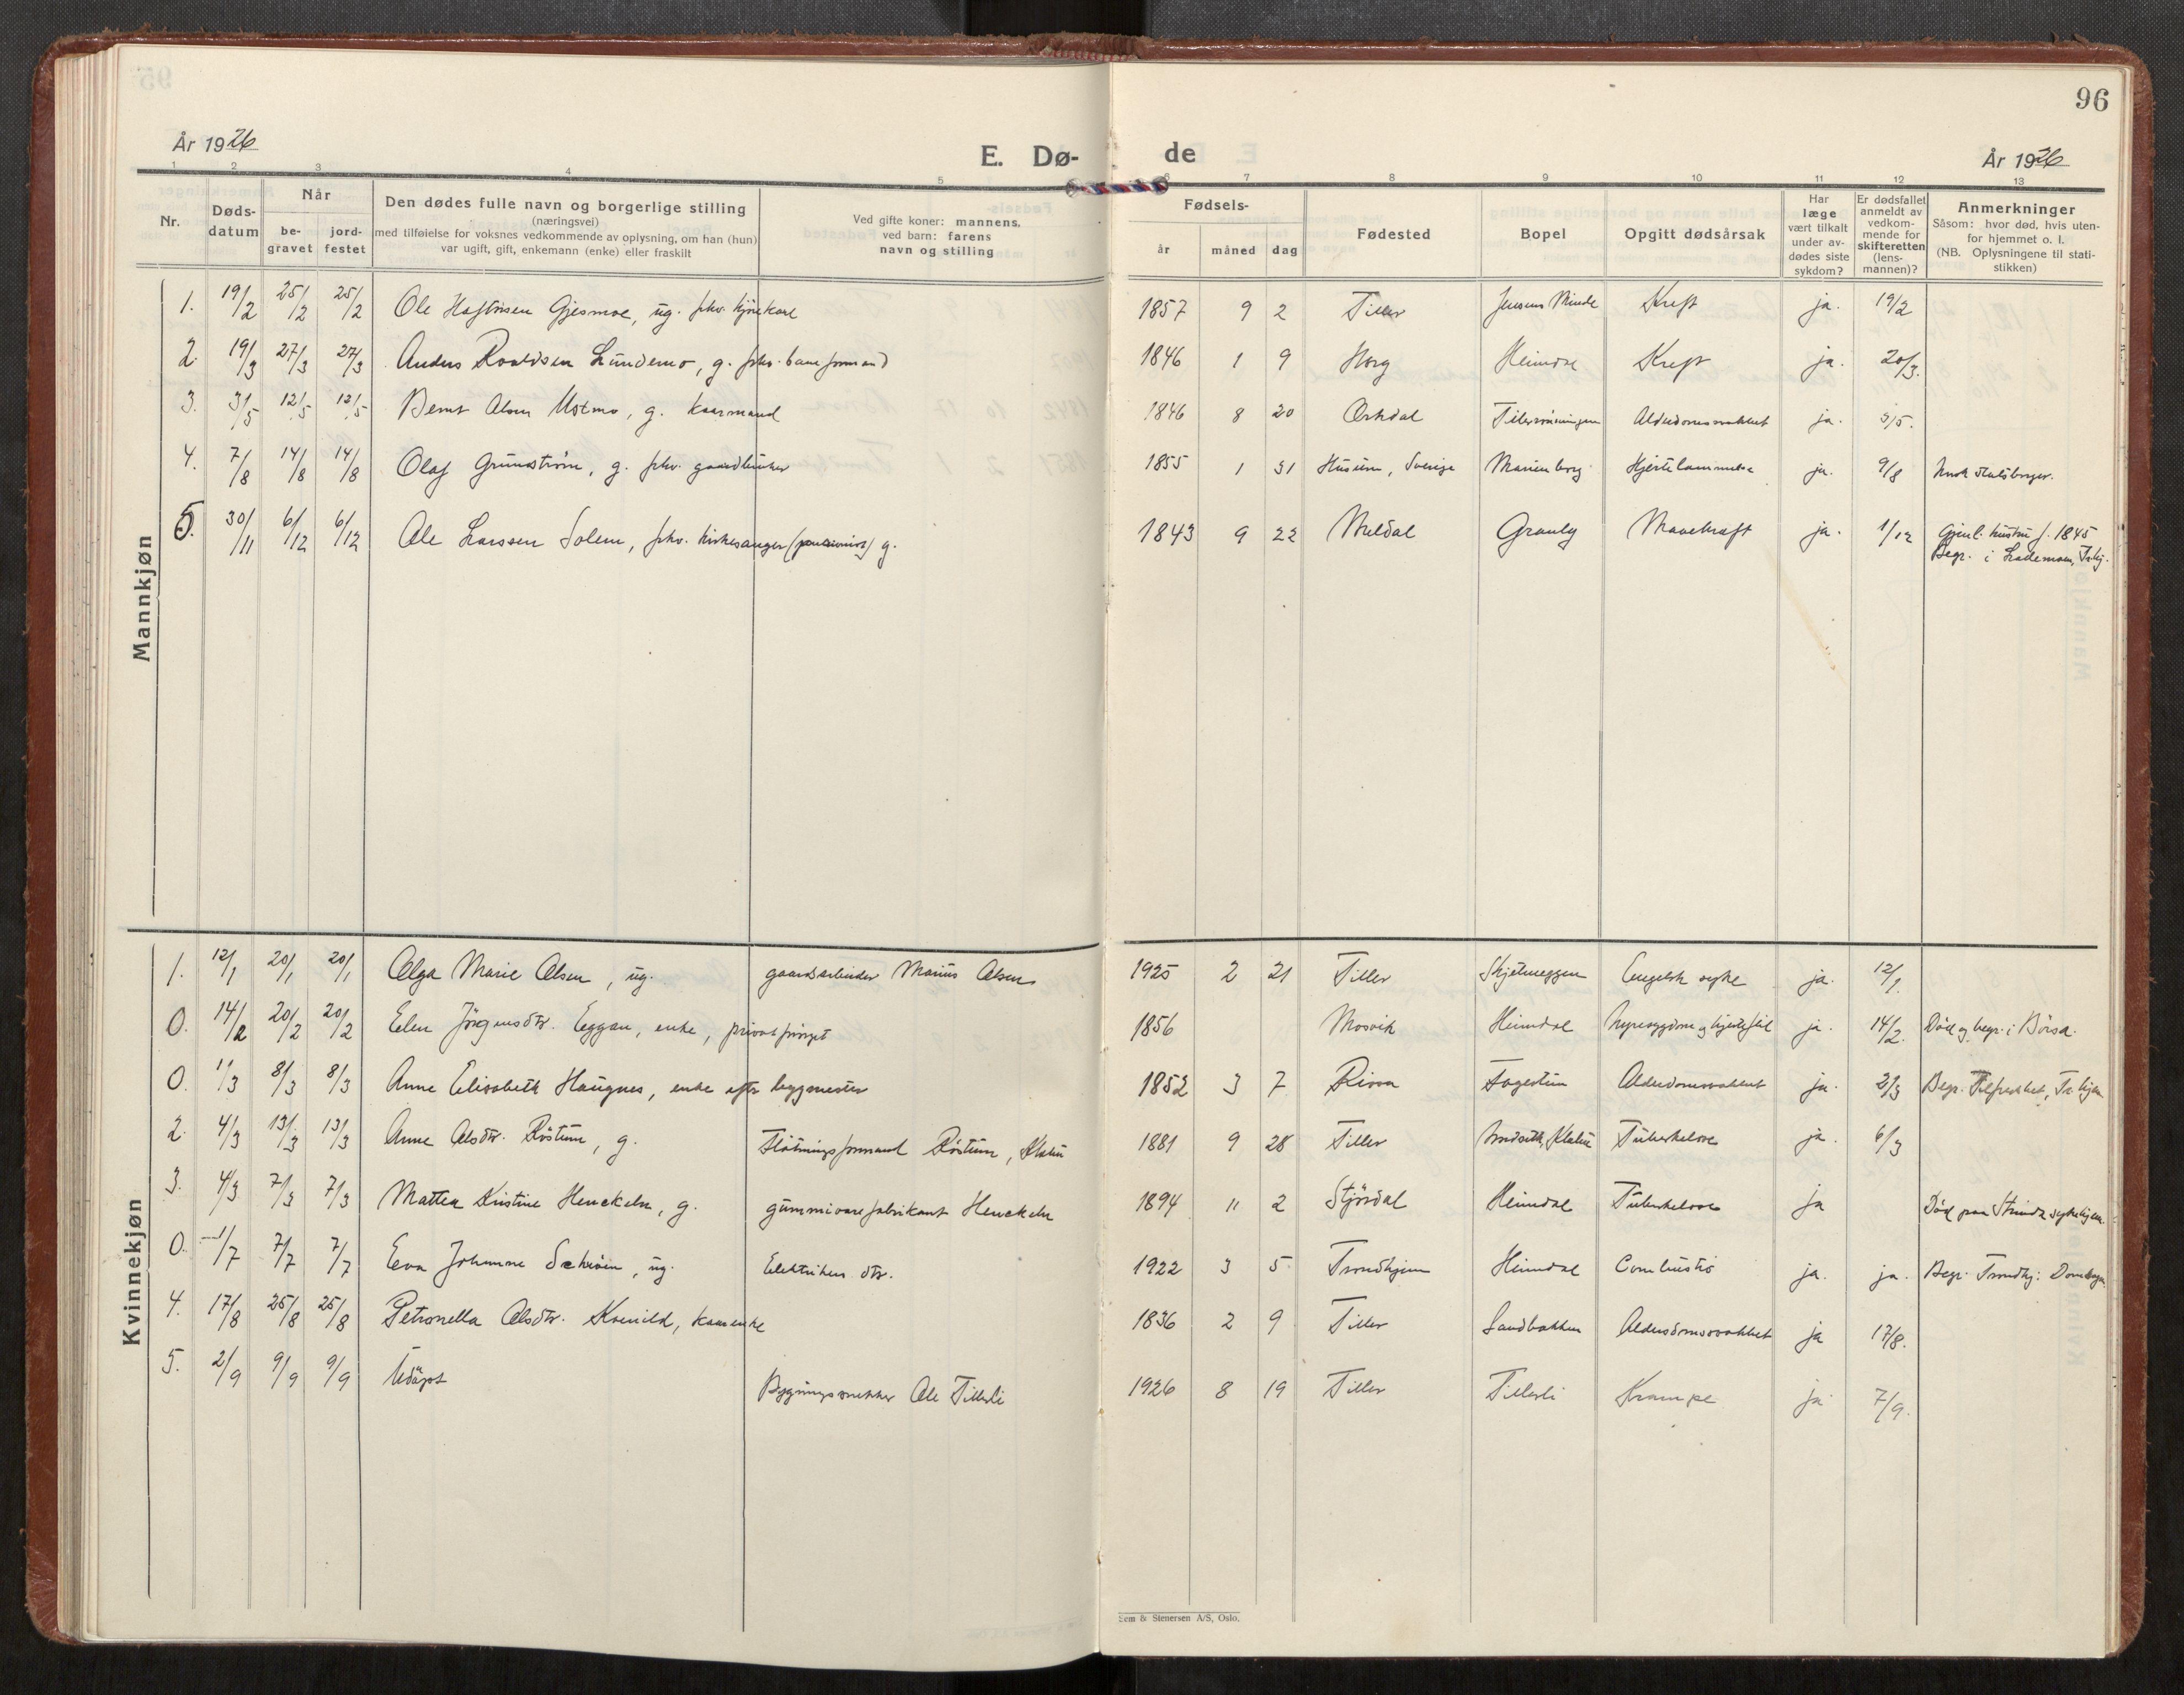 96
År 1926
E. Dø-
de
År 1926
1 2 3 4 5 6 7 8 9 10 11 12 13
Nr.
Døds-
datum
Når
be-
gravet
jord-
festet
Den dødes fulle navn og borgerlige stilling
(næringsvei)
med tilføielse for voksnes vedkommende av oplysning, om han (hun)
var ugift, gift, enkemann (enke) eller fraskilt
Ved gifte koner: mannens,
ved barn: farens
navn og stilling
Fødsels-
år måned dag
Fødested
Bopel
Opgitt dødsårsak
Har
læge
vært tilkalt
under av-
dødes siste
sykdom?
Er dødsfallet
anmeldt av
vedkom-
mende for
skifteretten
(lens-
mannen)?
Anmerkninger
Såsom: hvor død, hvis uten-
for hjemmet o. l.
(NB. Oplysningene til stati-
stikken)
Mannkjøn
1. 19/2 25/2 25/2 Ole Gjesmoe, ug. fhv. kjørekarl 1857 9 2 Tiller Jensens Minde Kreft ja. 19/2
2. 19/3 27/3 27/3 Anders Roaldsen Lundemo, g. fhv. baneformand 1846 1 9 Horg Heimdal Kreft ja. 20/3.
3. 3/5 12/5 12/5 Bernt Olsen Mostmo, g. kaarmand 1846 8 20 Orkdal Alderdomssvakhet ja. 5/5.
4. 7/8 14/8 14/8 Olaf Grundström, g. fhv. gaardbruker 1855 1 31 Husum, Sverige Marienborg Hjertelammelse ja. 9/8 Norsk statsborger.
5. 30/11 6/12 6/12 Ole Larssen Solem, fhv. kirkesanger (pensionist) g. 1843 9 22 Meldal Granly Mavekræft ja. 1/12 Gjenl. hustru f. 1845
Begr. i Lademoen, Tr.hj.
Kvinnekjøn
1. 12/1 20/1 20/1 Olga Marie Olsen, ug. gaardsarbeider Marius Olsen 1925 2 21 Tiller Engelsk syke ja. 12/1.
0. 14/2 20/2 20/2 Elen Jörgensdtr. Eggan, enke, privat forsørget 1856 Mosvik Heimdal Nyresygdom og hjertefeil ja. 14/2. Död og begr. i Börsa.
0. 1/3 8/3 8/3 Anne Elisabeth Haugnes, enke efter bygmester 1852 3 7 Rissa Fagertun Alderdomssvakhet ja. 2/3 Begr. Tilfredshet, Tr.hjem
2. 4/3 13/3 13/3 Anne Olsdtr. Röstum, g. Flötningsformand Röstum, Klæbu 1881 9 28 Tiller Tuberkulose ja. 6/3
3. 4/3 7/3 7/3 Mattea Kristine Henckeln, g. gummivarefabrikant Henckeln 1894 11 2 Stjördal Heimdal Tuberkulose ja Död paa Strinda sykehjem.
0. 1/7 7/7 7/7 Eva Johanne ug. Elektrikers dtr. 1922 3 5 Trondhjem Heimdal Combustio ja. ja. Begr. Trondhj: Domkirken
4. 17/8 25/8 25/8 Petronella Olsdtr. Kvenild, kaarenke 1836 2 9 Tiller Sandbakken Alderdomssvakhet ja 17/8.
5. 2/9 9/9 9/9 Udöpt Bygningssnekker Ole Tillerli 1926 8 19 Tiller Tillerli Krampe ja 7/9.
Sem & Stenersen A/S, Oslo.